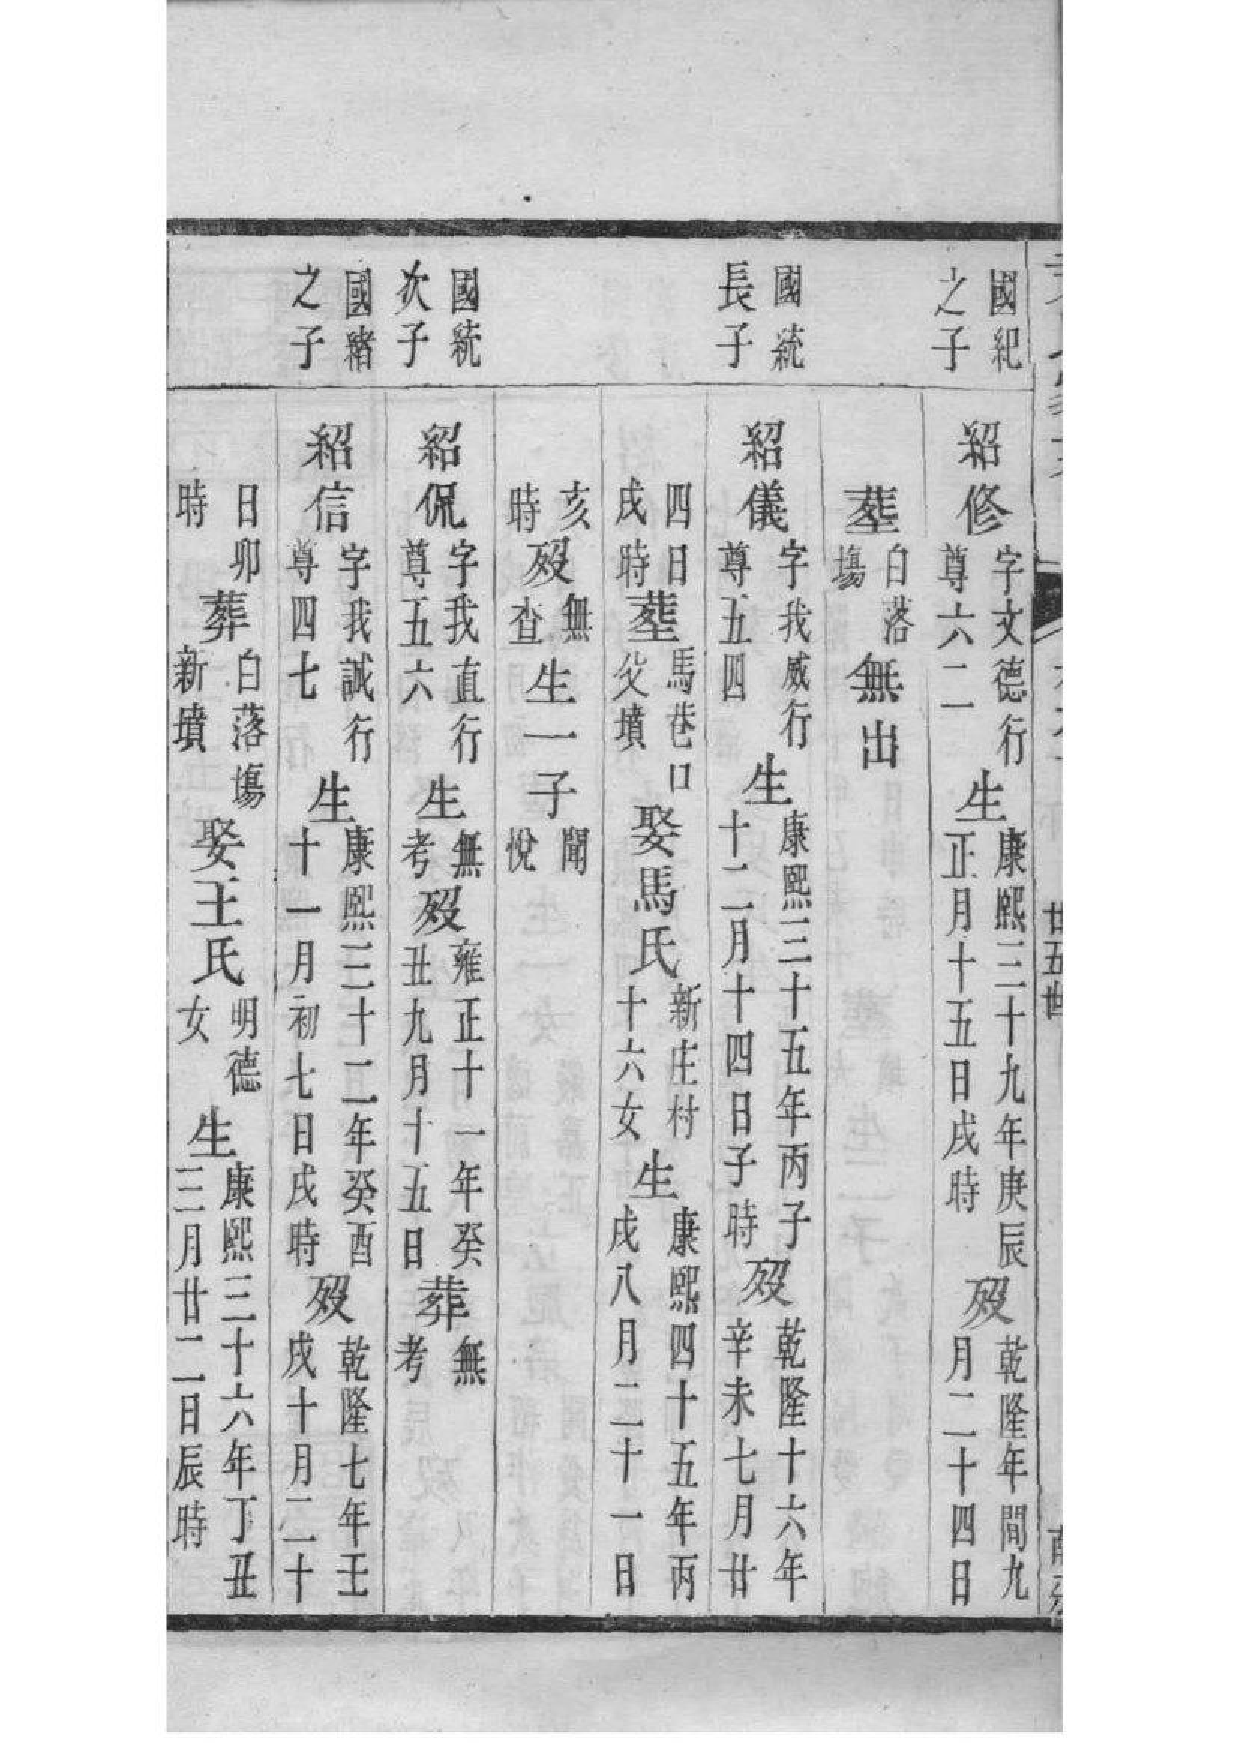 廿五世
國紀之子
紹修字文德行尊六二生康熙三十九年庚辰正月十五日戌時歿乾隆年間九月二十四日
塟白落塲無出
國統長子
紹儀字我威行尊五四生康熙三十五年丙子十二月十四日子時歿乾隆十六年辛未七月廿
四日戌時塟馬巷口父墳娶馬氏新庄村十六女生康熙四十五年丙戌八月二十一日
亥時歿無查生一子聞悅
國統次子
紹侃字我直行尊五六生無考歿雍正十一年癸丑九月十五日葬無考
國緒之子
紹信字我誠行尊四七生康熙三十二年癸酉十一月初七日戌時歿乾隆七年壬戌十月二十
日卯時葬白落塲新墳娶王氏明德女生康熙三十六年丁丑三月廿二日辰時